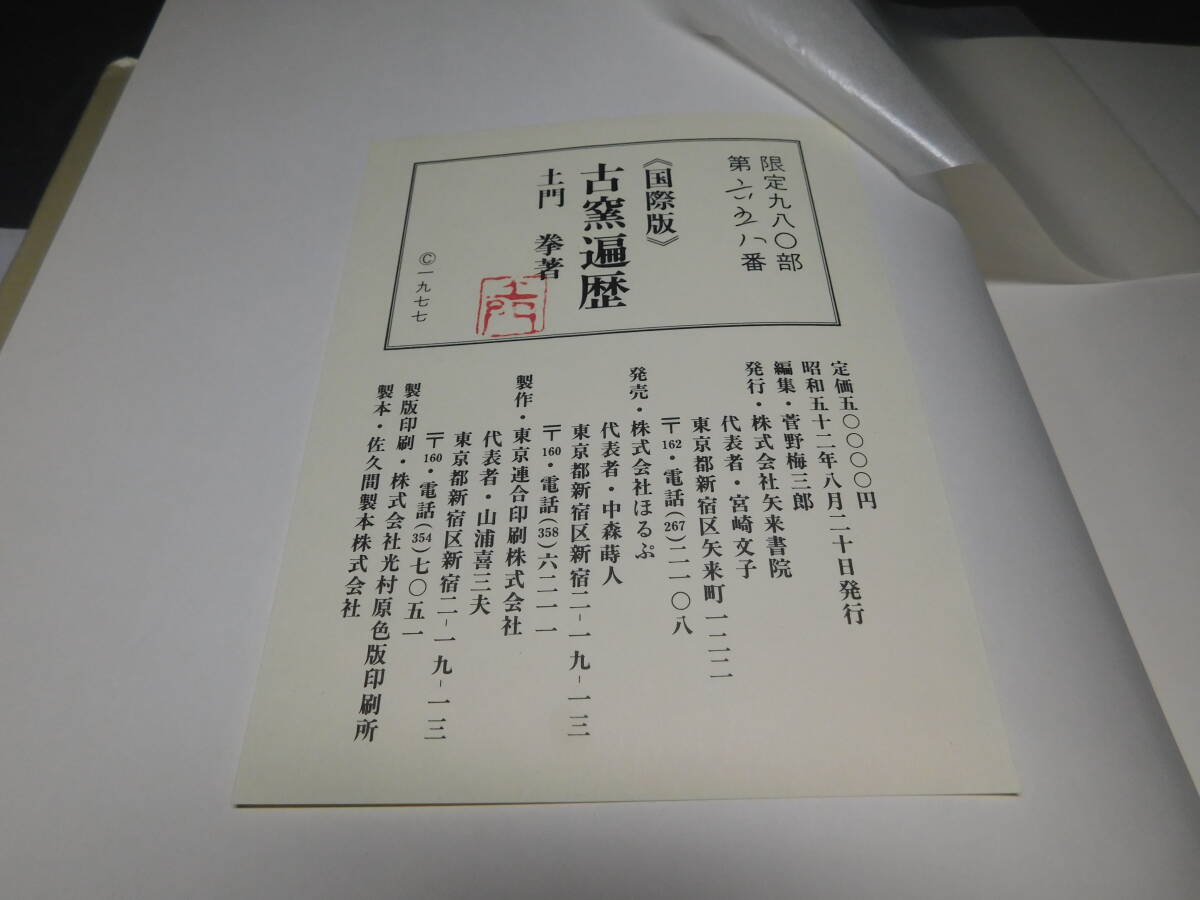 限定九八〇部
第六五八番
《国際版》
古窯遍歴
土門 拳著
©一九七七
定価五〇〇〇〇円
昭和五十二年八月二十日発行
編集・菅野梅三郎
発行・株式会社矢来書院
代表者・宮崎文子
東京都新宿区矢来町一二二
〒162・電話(267)二一〇八
発売・株式会社ほるぷ
代表者・中森蒔人
東京都新宿区新宿二-一九-一三
〒160・電話(358)六二一一
製作・東京連合印刷株式会社
代表者・山浦喜三夫
東京都新宿区新宿二-一九-一三
〒160・電話(354)七〇五一
製版印刷・株式会社光村原色版印刷所
製本・佐久間製本株式会社